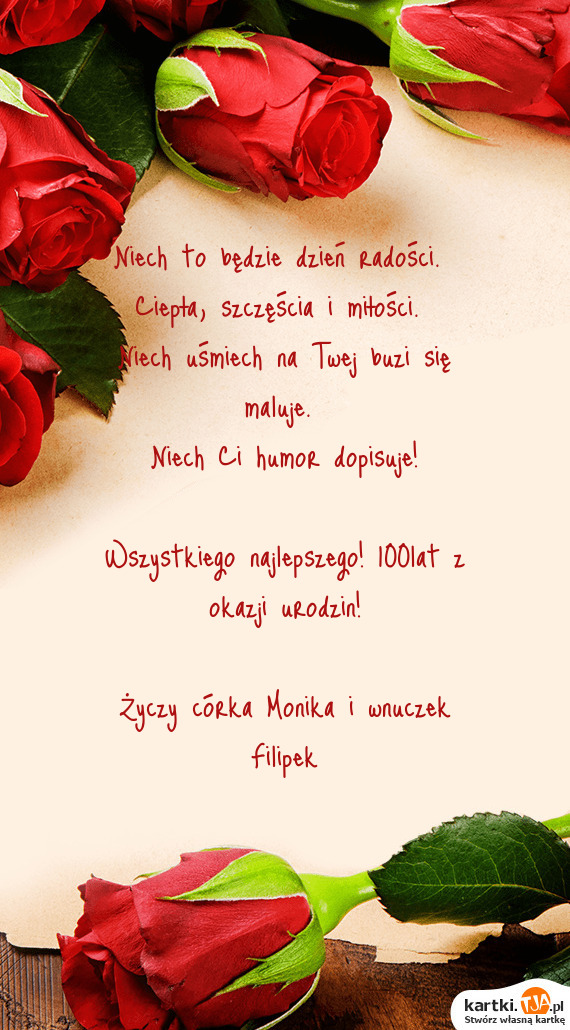 Niech to będzie dzień radości.
Ciepła, szczęścia i miłości.
Niech uśmiech na Twej buzi się
maluje.
Niech Ci humor dopisuje!
Wszystkiego najlepszego! 100lat z
okazji urodzin!
Życzy córka Monika i wnuczek
filipek
kartki.TJA.pl
Stwórz własną kartkę